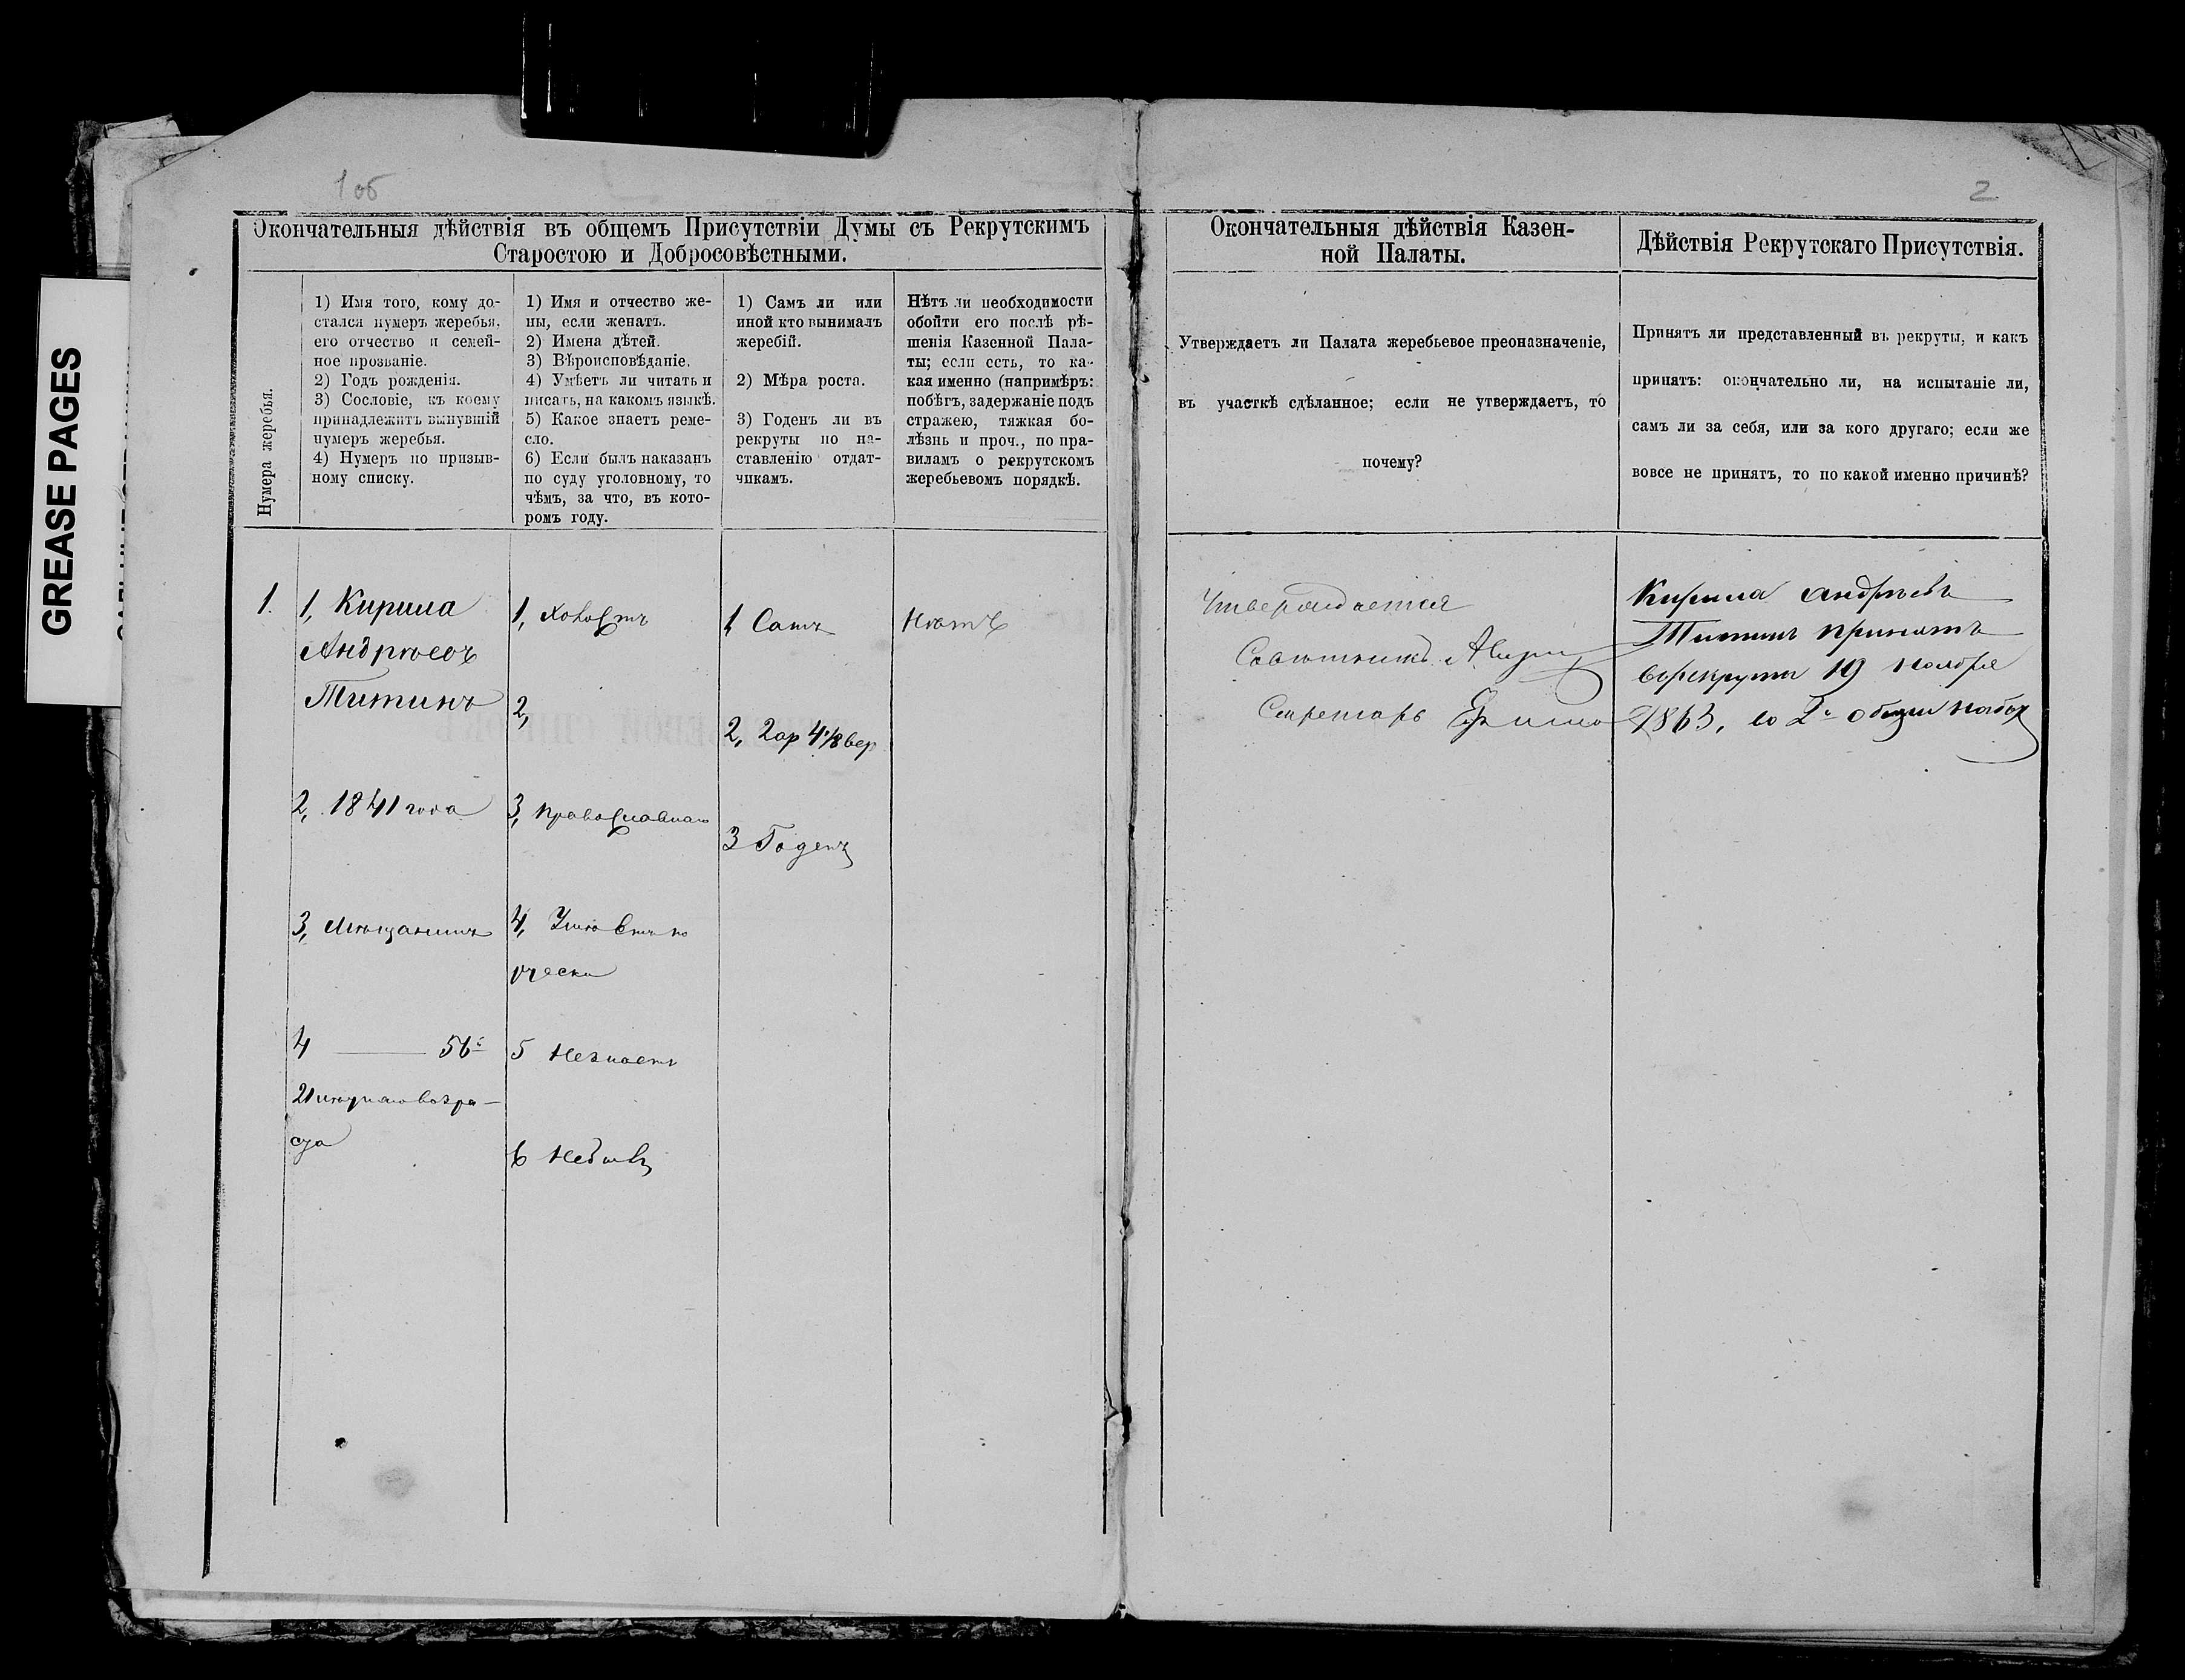 GREASE PAGES
1об
2
Окончательныя дѣйствія въ общемъ Присутствіи Думы съ Рекрутскимъ
Старостою и Добросовѣстными.
Нумера жеребья.
1) Имя того, кому до-
стался нумеръ жеребья,
его отчество и семей-
ное прозваніе.
2) Годъ рожденія.
3) Сословіе, къ коему
принадлежитъ вынувшій
нумеръ жеребья.
4) Нумеръ по призыв-
ному списку.
1) Имя и отчество же-
ны, если женатъ.
2) Имена дѣтей.
3) Вѣроисповѣданіе.
4) Умѣетъ ли читать и
писать, на какомъ языкѣ.
5) Какое знаетъ реме-
сло.
6) Если былъ наказанъ
по суду уголовному, то
чѣмъ, за что, въ кото-
ромъ году.
1) Самъ ли или
иной кто вынималъ
жеребій.
2) Мѣра роста.
3) Годенъ ли въ
рекруты по на-
ставленію отдат-
чикамъ.
Нѣтъ ли необходимости
обойти его послѣ рѣ-
шенія Казенной Пала-
ты; если есть, то ка-
кая именно (напримѣръ:
побѣгъ, задержаніе подъ
стражею, тяжкая бо-
лѣзнь и проч., по пра-
виламъ о рекрутскомъ
жеребьевомъ порядкѣ.
1.
1, Кирила
Андрѣевъ
Титинъ
2, 1841 года
3, Мѣщанинъ
4 56й
21 возра-
ста
1, Холостъ
2,
3, Православнаго
4, Умѣетъ по
русски
5 Незнаетъ
6 Небылъ
1, Самъ
2, 2 ар 4 1/8 вер
3 Годенъ
Нѣтъ
Окончательныя дѣйствія Казен-
ной Палаты.
Утверждаетъ ли Палата жеребьевое преоназначеніе,
въ участкѣ сдѣланное; если не утверждаетъ, то
почему?
Утверждается
Совѣтникъ
Секретарь
Дѣйствія Рекрутскаго Присутствія.
Принятъ ли представленный въ рекруты, и какъ
принятъ: окончательно ли, на испытаніе ли,
самъ ли за себя, или за кого другаго; если же
вовсе не принятъ, то по какой именно причинѣ?
Кирила Андрѣевъ
Титинъ принятъ
въ рекруты 19 Ноября
1863, во 2й общій наборъ